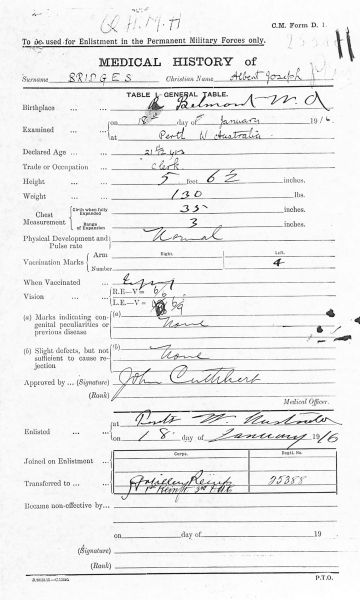 C.M. Form D. 1.
To be used for Enlistment in the Permanent Military Forces only.
MEDICAL HISTORY of
Surname BRIDGES Christian Name Albert Joseph
TABLE I.—GENERAL TABLE.
Birthplace ... Belmont W. A
Examined ... on 18th day of January 1916
at Perth W Australia.
Declared Age ...
Trade or Occupation ... Clerk
Height ... 5 feet 6½ inches.
Weight ... 130 lbs.
Chest Measurement Girth when fully Expanded 35 inches.
Range of Expansion 3 inches.
Physical Development and Pulse rate Normal
Vaccination Marks Arm Right. Left.
Number 4
When Vaccinated ...
Vision ... R.E.—V= 6/6
L.E.—V=
(a) Marks indicating congenital peculiarities or previous disease (a) None
(b) Slight defects, but not sufficient to cause rejection (b) None
Approved by ... (Signature) John Cuthbert
(Rank)
Medical Officer.
Enlisted ... at Perth W Australia
on 18 day of January 1916
Corps. Regtl. No.
Joined on Enlistment ...
Transferred to ... Artillery Reinfts 25388
Became non-effective by ...
on day of 19
(Signature)
(Rank)
P.T.O.